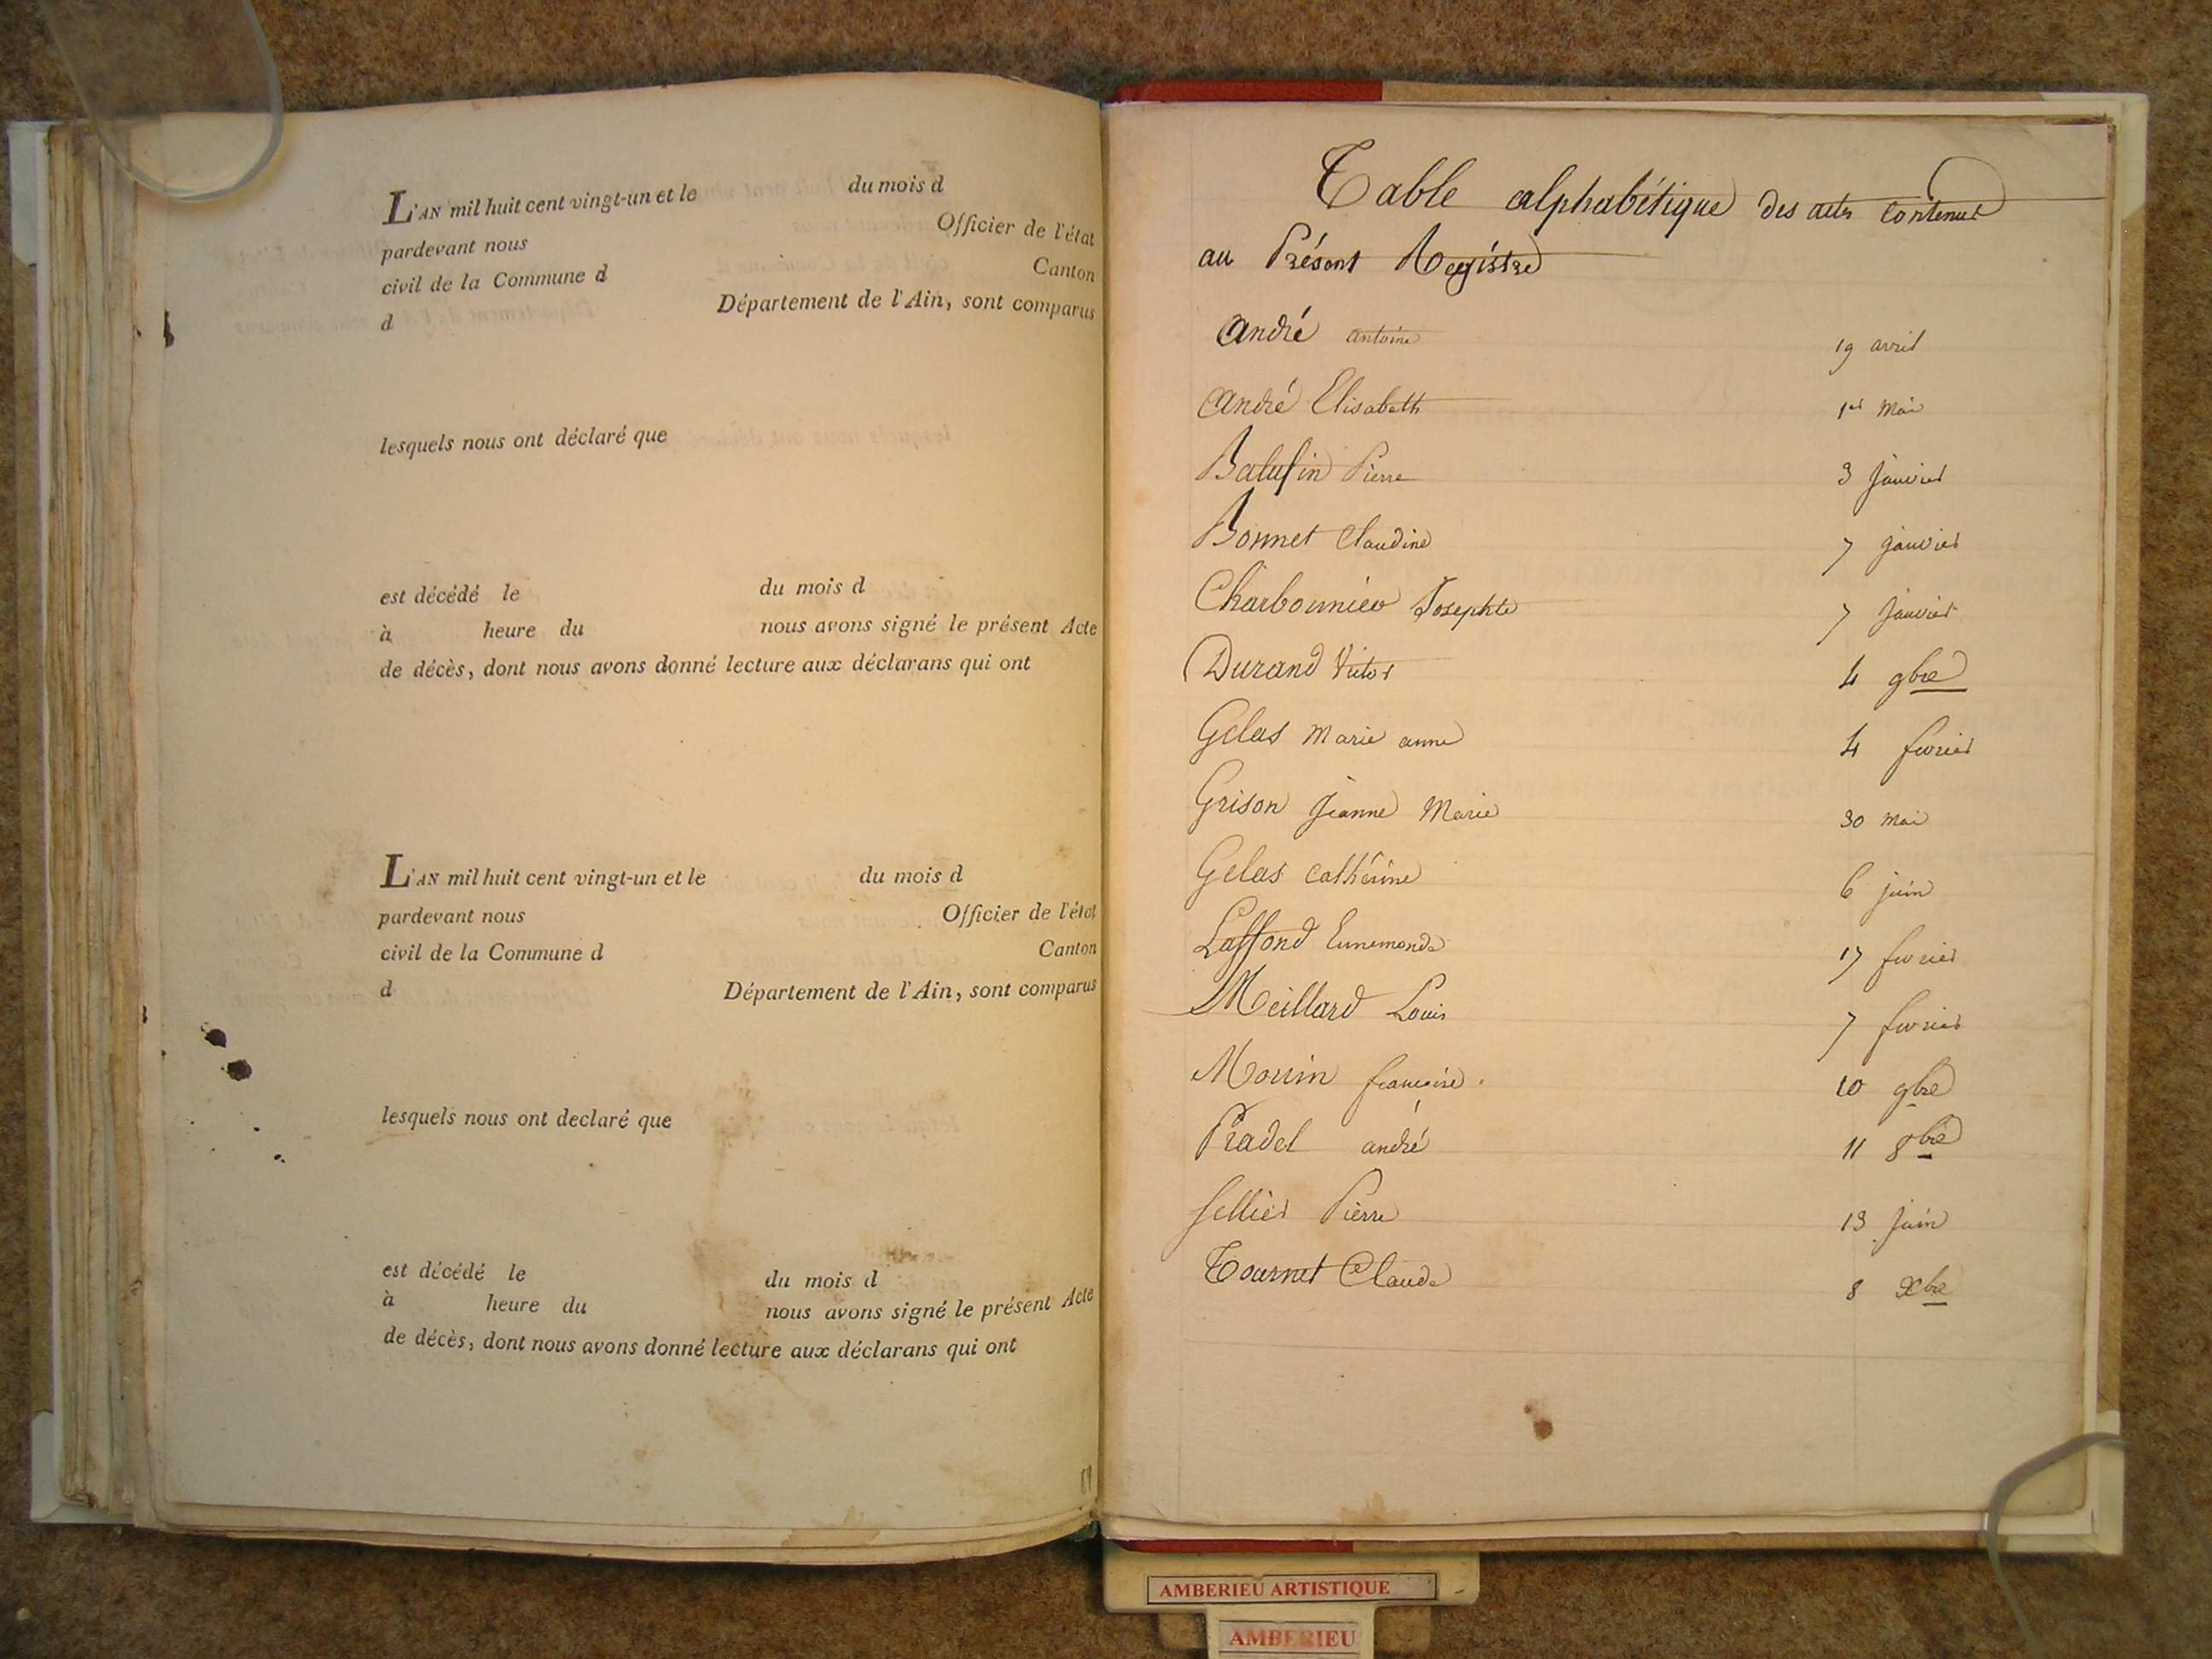 L'AN mil huit cent vingt-un et le du mois d
pardevant nous Officier de l'état
civil de la Commune d Canton
d Département de l'Ain, sont comparus
lesquels nous ont déclaré que
est décédé le du mois d
à heure du nous avons signé le présent Acte
de décès, dont nous avons donné lecture aux déclarans qui ont
L'AN mil huit cent vingt-un et le du mois d
pardevant nous Officier de l'état
civil de la Commune d Canton
d Département de l'Ain, sont comparus
lesquels nous ont declaré que
est décédé le du mois d
à heure du nous avons signé le présent Acte
de décès, dont nous avons donné lecture aux déclarans qui ont
Table alphabétique des actes contenus
au Présent Registre
André antoine 19 avril
André Elisabeth 1er Mai
Pierre 3 Janvier
Bonnet Claudine 7 janvier
Charbonnier Josephte 7 Janvier
Durand Victor 4 9bre
Gelas Marie anne 4 fevrier
Grison Jeanne Marie 30 mai
Gelas Cathérine 6 juin
Laffond Ennemonde 17 fevrier
Meillard Louis 7 fevrier
françoise 10 9bre
Pradel andré 11 8bre
Sellier Pierre 13 Juin
Tournet Claude 8 Xbre
AMBERIEU ARTISTIQUE
AMBERIEU